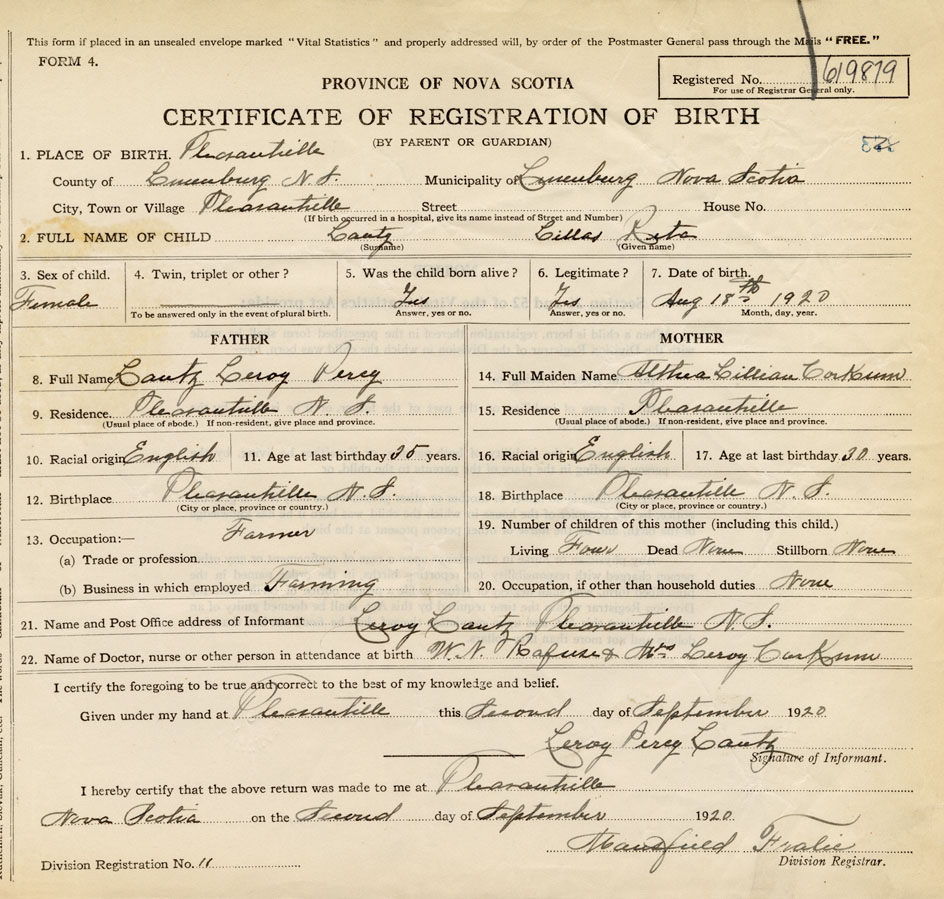 This form if placed in an unsealed envelope marked "Vital Statistics" and properly addressed will, by order of the Postmaster General pass through the Mails "FREE."
FORM 4.
Registered No. 619879
For use of Registrar General only.
PROVINCE OF NOVA SCOTIA
CERTIFICATE OF REGISTRATION OF BIRTH
(BY PARENT OR GUARDIAN)
1. PLACE OF BIRTH. Pleasantville
County of Lunenburg N.S. Municipality of Lunenburg Nova Scotia
City, Town or Village Pleasantville Street House No.
(If birth occurred in a hospital, give its name instead of Street and Number)
2. FULL NAME OF CHILD Lantz Rita
(Surname) (Given name)
3. Sex of child. 4. Twin, triplet or other? 5. Was the child born alive? 6. Legitimate? 7. Date of birth.
Female Yes Yes Aug 18th 1920
To be answered only in the event of plural birth. Answer, yes or no. Answer, yes or no. Month, day, year.
FATHER
8. Full Name Lantz Leroy Percy
9. Residence. Pleasantville N.S.
(Usual place of abode.) If non-resident, give place and province.
10. Racial origin English 11. Age at last birthday 35 years.
12. Birthplace Pleasantville N.S.
(City or place, province or country.)
13. Occupation:— Farmer
(a) Trade or profession
(b) Business in which employed Farming
MOTHER
14. Full Maiden Name Althea Lillian Corkum
15. Residence Pleasantville
(Usual place of abode.) If non-resident, give place and province.
16. Racial origin English 17. Age at last birthday 30 years.
18. Birthplace Pleasantville N.S.
(City or place, province or country.)
19. Number of children of this mother (including this child.)
Living Four Dead None Stillborn None
20. Occupation, if other than household duties None
21. Name and Post Office address of Informant Leroy Lantz Pleasantville N.S.
22. Name of Doctor, nurse or other person in attendance at birth W.N. Rafuse & Mrs Leroy Corkum
I certify the foregoing to be true and correct to the best of my knowledge and belief.
Given under my hand at Pleasantville this Second day of September 1920
Leroy Percy Lantz
Signature of Informant.
I hereby certify that the above return was made to me at Pleasantville
Nova Scotia on the Second day of September 1920.
Mansfield Fralic
Division Registration No. 11 Division Registrar.